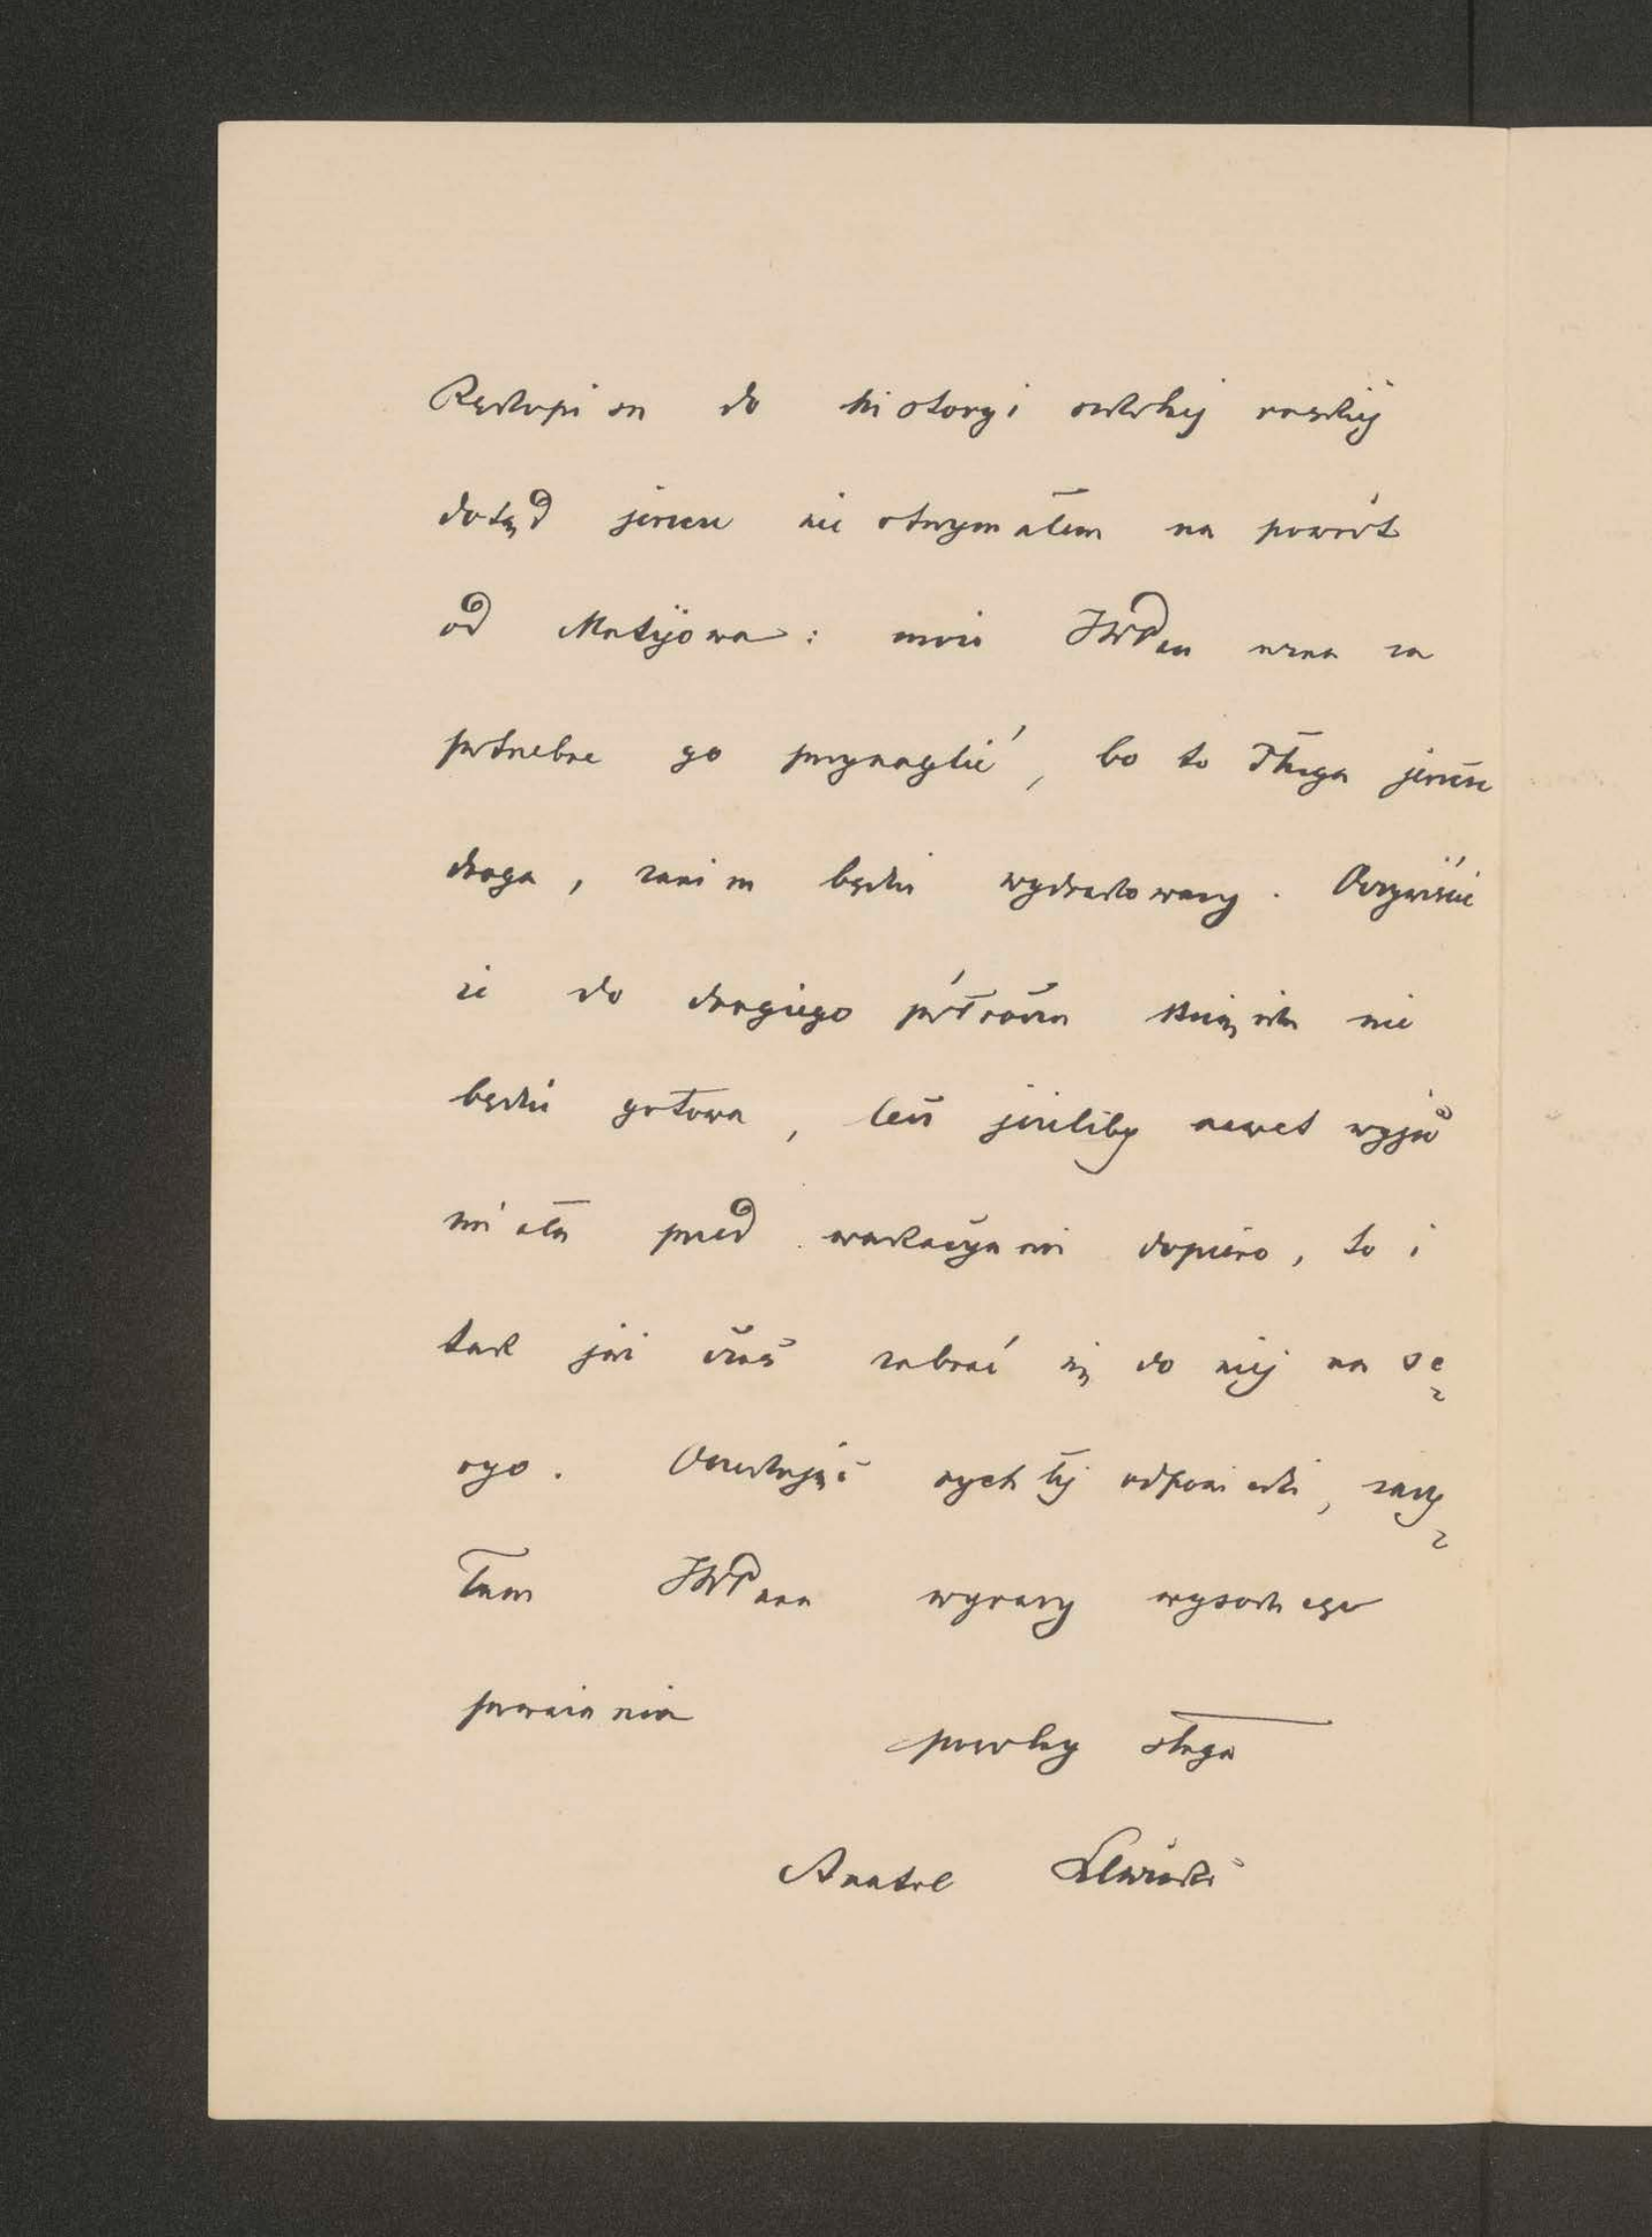 Rękopism do historyi szkolnej ruskiej
dotąd jeszcze nie otrzymałem na powrót
od Matijowa: może JWPan uzna za
potrzebne go przynaglić, bo to długa jeszcze
droga, zanim będzie wydrukowany. Oczywiście
że do drugiego półrocza książka nie
będzie gotowa, lecz jeżeliby nawet wyjść
miała przed wakacyami dopiero, to i
tak już czas zabrać się do niej na se-
ryo. Oczekując rychłej odpowiedzi, zasy-
łam JWPanu wyrazy wysokiego
poważania
powolny sługa
Anatol Lewicki